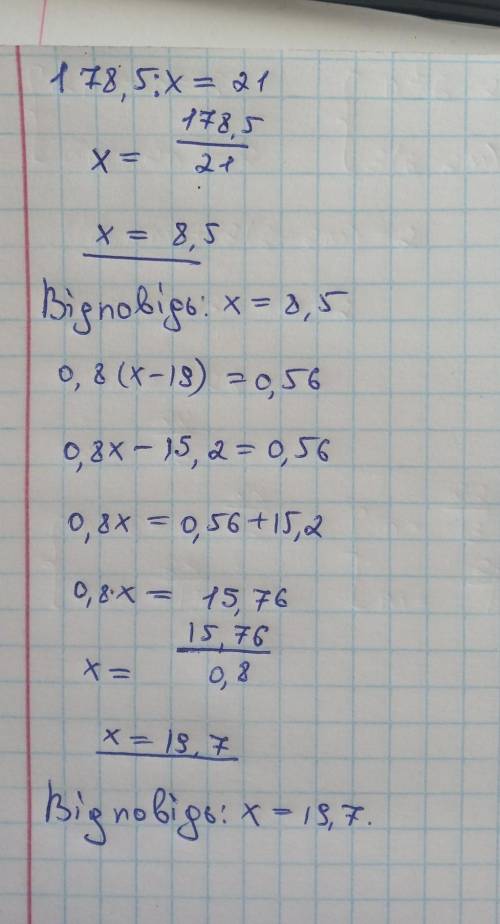 178,5:x = 21
x = 178,5/21
x = 8,5
Відповідь: x = 8,5
0,8(x-19) = 0,56
0,8x - 15,2 = 0,56
0,8x = 0,56 + 15,2
0,8·x = 15,76
x = 15,76/0,8
x = 19,7
Відповідь: x = 19,7.